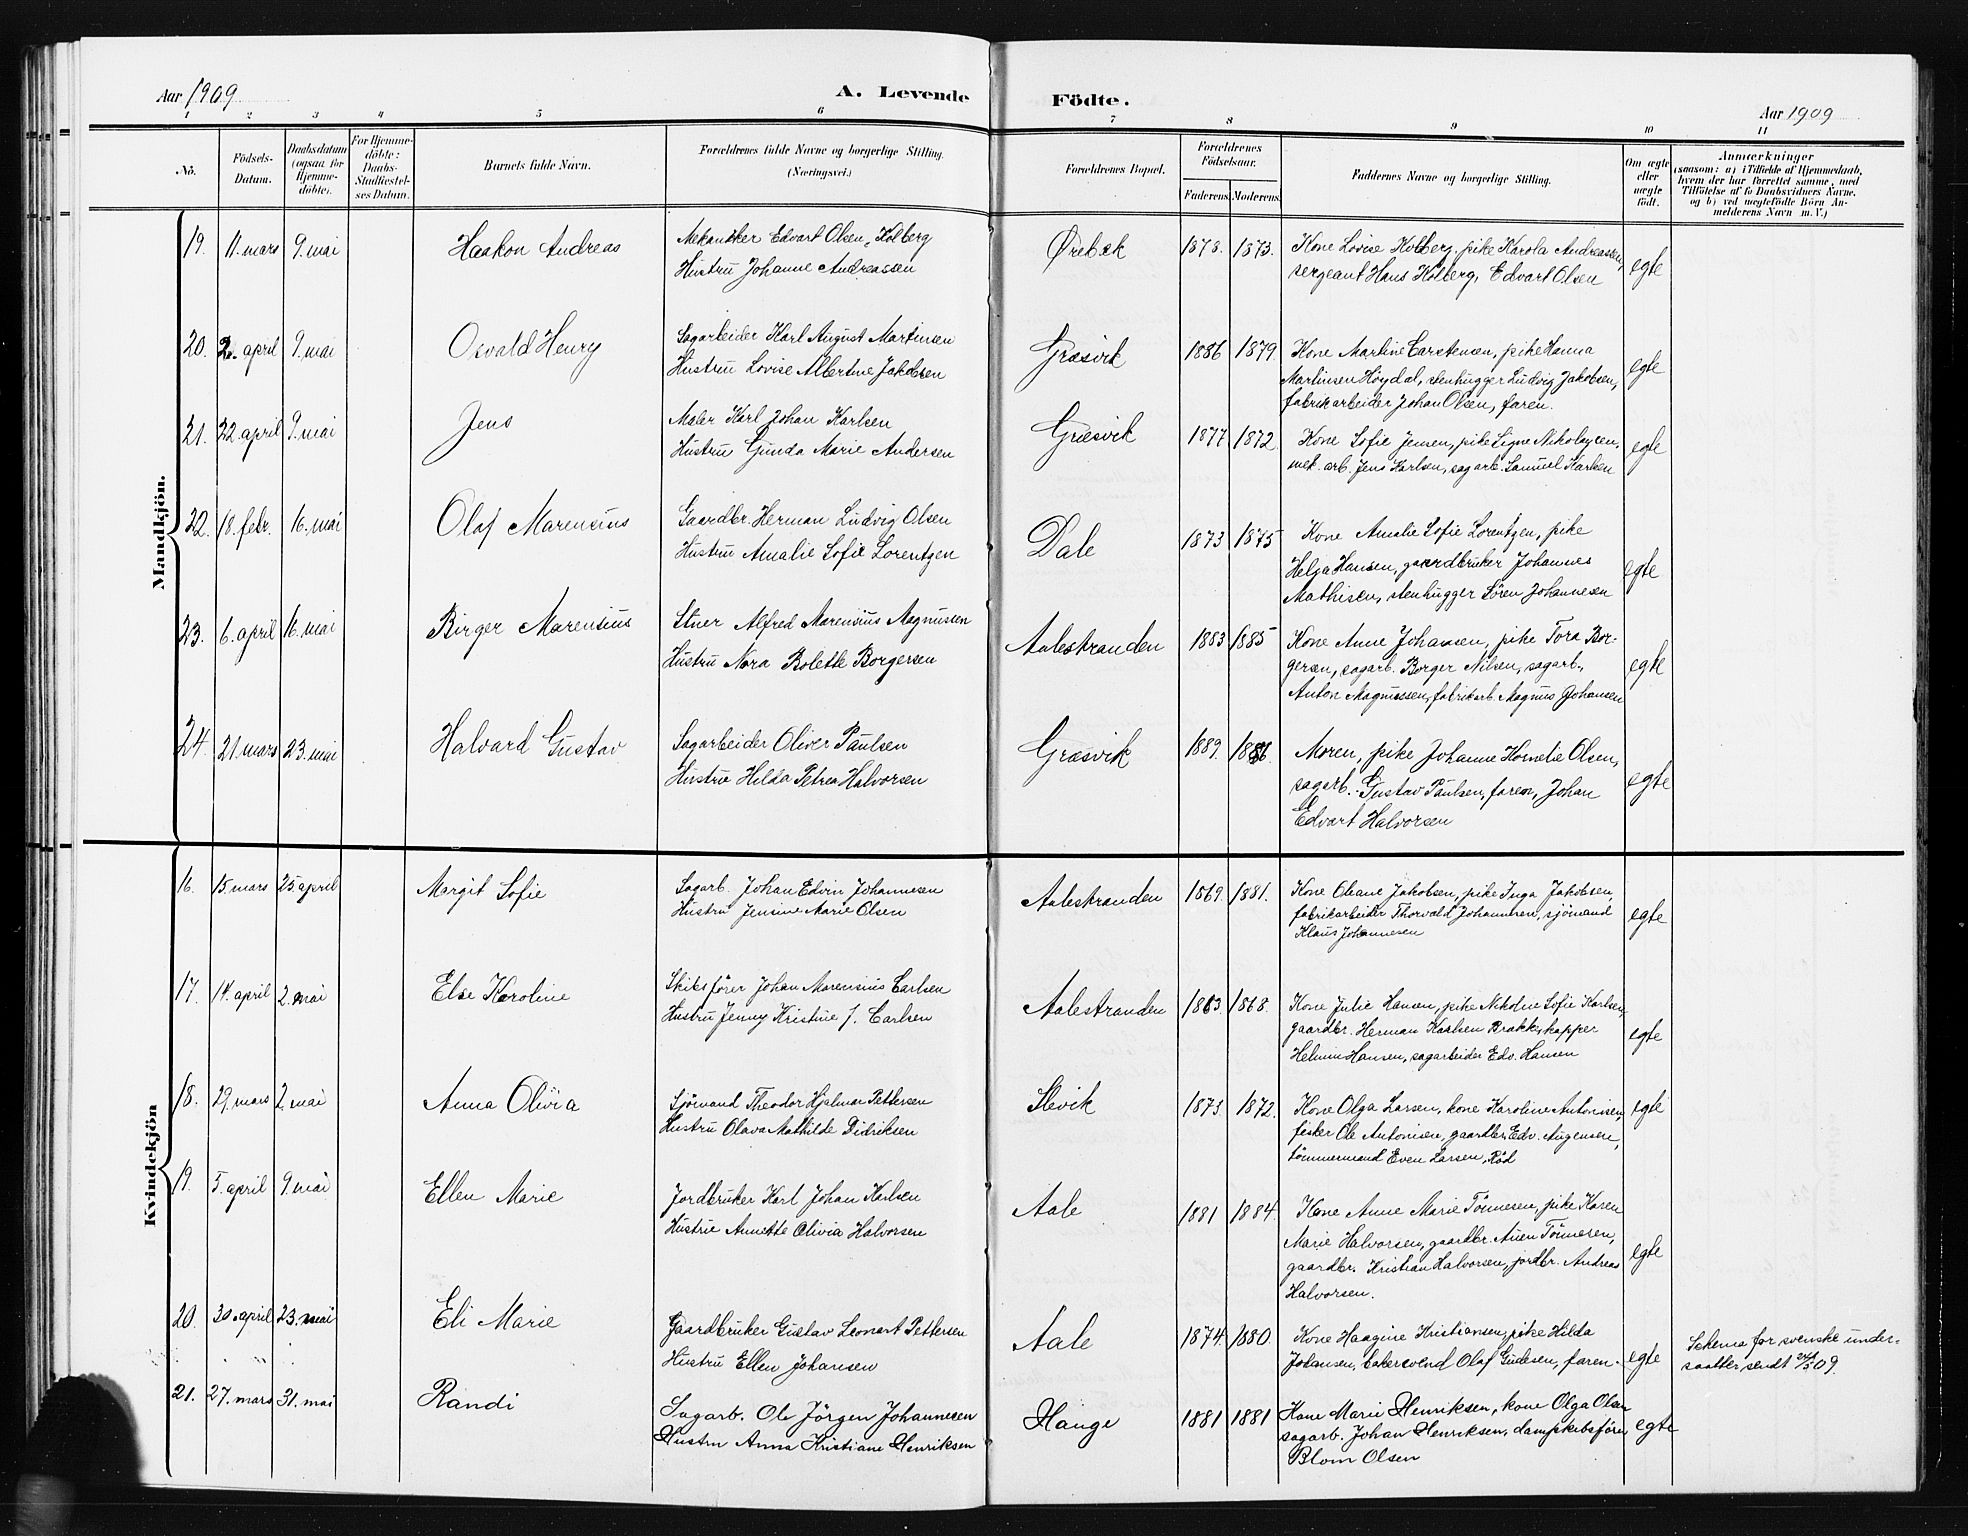 Aar 1909
A. Levende
Födte.
Aar 1909
1 2 3 4 5 6 7 8 9 10 11
No.
Födsels-
Datum.
Daabsdatum
(ogsaa for
Hjemme-
döbte).
For Hjemme-
döbte:
Daabs-
Stadfæstel-
ses Datum.
Barnets fulde Navn.
Forældrenes fulde Navne og borgerlige Stilling.
(Næringsvei.)
Forældrenes Bopæl.
Forældrenes
Födselsaar.
Faderens Moderens
Faddernes Navne og borgerlige Stilling.
Om ægte
eller
uægte
födt.
Anmærkninger
(saasom: a) i Tilfælde af Hjemmedaab,
hvem der har forrettet samme, med
Tilföielse af to Daabsvidners Navne,
og b) ved uægtefödte Börn An-
melderens Navn m. V.)
Mandkjön.
19. 11. mars 9. mai Haakon Andreas
Mekaniker Edvart Olsen, Kolberg
Hustru Johanne Andreassen
Ørebæk 1878. 1873.
Kone Lovise Kolberg, pike Karola Andreassen,
sergeant Hans Kolberg, Edvart Olsen
egte
20. 2. april 9. mai Osvald Henry
Sagarbeider Karl August Martinsen
Hustru Lovise Albertine Jakobsen
Græsvik 1886 1879.
Kone Martine Carstensen, pike Hanna
Martinsen Höydal, stenhugger Ludvig Jakobsen,
fabrikarbeider Johan Olsen, faren.
egte
21. 22. april 9. mai Jens
Maler Karl Johan Karlsen
Hustru Gunda Marie Andersen
Græsvik 1877 1872.
Kone Sofie Jensen, pike Signe Nikolaysen,
mek. arb. Jens Karlsen, sagarb. Samuel Karlsen
egte
22. 18. febr. 16. mai Olaf Marensius
Gaardbr. Herman Ludvig Olsen
Hustru Amalie Sofie Lorentzen
Dale 1873 1875
Kone Amalie Sofie Lorentzen, pike
Helga Hansen, gaardbruker Johannes
Mathisen, stenhugger Sören Johannesen
egte
23. 6. april 16. mai Birger Marensius
Stuer Alfred Marensius Magnussen
Hustru Nora Bolette Borgersen
Aalestranden 1883 1885
Kone Anne Johansen, pike Tora Bor-
gersen, sagarb. Borger Nilsen, sagarb.
Anton Magnussen, fabrikarb. Magnus Johansen
egte
24. 21. mars 23. mai Halvard Gustav
Sagarbeider Oliver Paulsen
Hustru Hilda Petrea Halvorsen
Græsvik 1889. 1886.
Moren, pike Johanne Kornelie Olsen,
sagarb. Gustav Paulsen, faren, Johan
Edvart Halvorsen
egte
Kvindekjön
16. 15. mars 25 april Margit Sofie
Sagarb. Johan Edvin Johannesen
Hustru Jensine Marie Olsen
Aalestranden 1869. 1881.
Kone Oleane Jakobsen, pike Inga Jakobsen,
fabrikarbeider Thorvald Johannesen, sjömand
Klaus Johannesen
egte
17. 14. april 2. mai Else Karoline
Skibsförer Johan Marensius Carlsen
Hustru Jenny Kristine J. Carlsen
Aalestranden 1863. 1868.
Kone Julie Hansen, pike Nikoline Sofie Karlsen,
gaardbr. Herman Karlsen Brække, kapper
Helmin Hansen, sagarbeider Edv. Hansen
egte
18. 29. mars 2. mai Anna Olivia
Sjömand Theodor Hjalmar Pettersen
Hustru Olava Mathilde Didriksen
Slevik 1873. 1872.
Kone Olga Larsen, kone Karoline Antonisen,
fisker Ole Antonisen, gaardbr. Edv. Augensen,
tömmermand Even Larsen, Röd
egte
19. 5. april 9. mai Ellen Marie
Jordbruker Karl Johan Karlsen
Hustru Annette Olivia Halvorsen
Aale 1881 1884.
Kone Anne Marie Tönnesen, pike Karen
Marie Halvorsen, gaardbr. Auen Tönnesen,
gaardbr. Kristian Halvorsen, jordbr. Andreas
Halvorsen.
egte
20. 30. april 23. mai Eli Marie
Gaardbruker Gustav Leonart Pettersen
Hustru Ellen Johansen
Aale 1874. 1880.
Kone Haagine Kristiansen, pike Hilda
Johansen, bakersvend Olaf Gudesen, faren.
egte
Schema for svenske under-
saatter sendt 24/5 09.
21. 27. mars 31. mai Randi
Sagarb. Ole Jörgen Johannesen
Hustru Anna Kristiane Henriksen
Hauge 1881 1881
Kone Marie Henriksen, kone Olga Olsen
sagarb. Johan Henriksen, dampskibsförer
Blom Olsen
egte